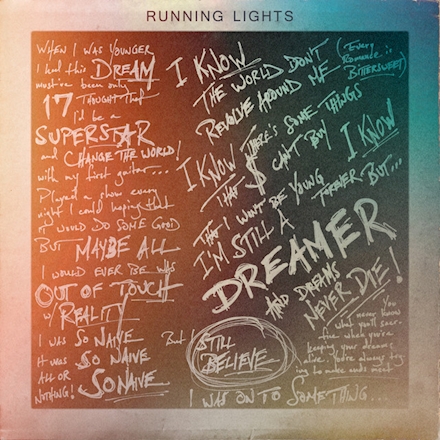 RUNNING LIGHTS
WHEN I WAS YOUNGER
I had this DREAM
must've been only
17 THOUGHT THAT
I'd be a
SUPERSTAR
and CHANGE THE WORLD!
with my first guitar...
Played a show every
night I could hoping that
it WOULD DO SOME GOOD
BUT MAYBE ALL
I WOULD EVER BE WAS
OUT OF TOUCH
w/ REALITY
I WAS SO NAIVE
It was SO NAIVE
ALL OR
NOTHING! SO NAIVE
But I STILL
BELIEVE
I WAS ON TO SOMETHING...
I KNOW
THE WORLD DON'T
REVOLVE AROUND ME
(Every
Romance is
BITTERSWEET)
I KNOW THERE'S SOME THINGS
THAT $ CAN'T BUY I KNOW
THAT I WON'T BE YOUNG
FOREVER BUT...
I'M STILL A
DREAMER
AND DREAMS
NEVER DIE!
You
never know
what you'll sacri-
fice when you're
keeping your dreams
alive. You're always try-
ing to make ends meet